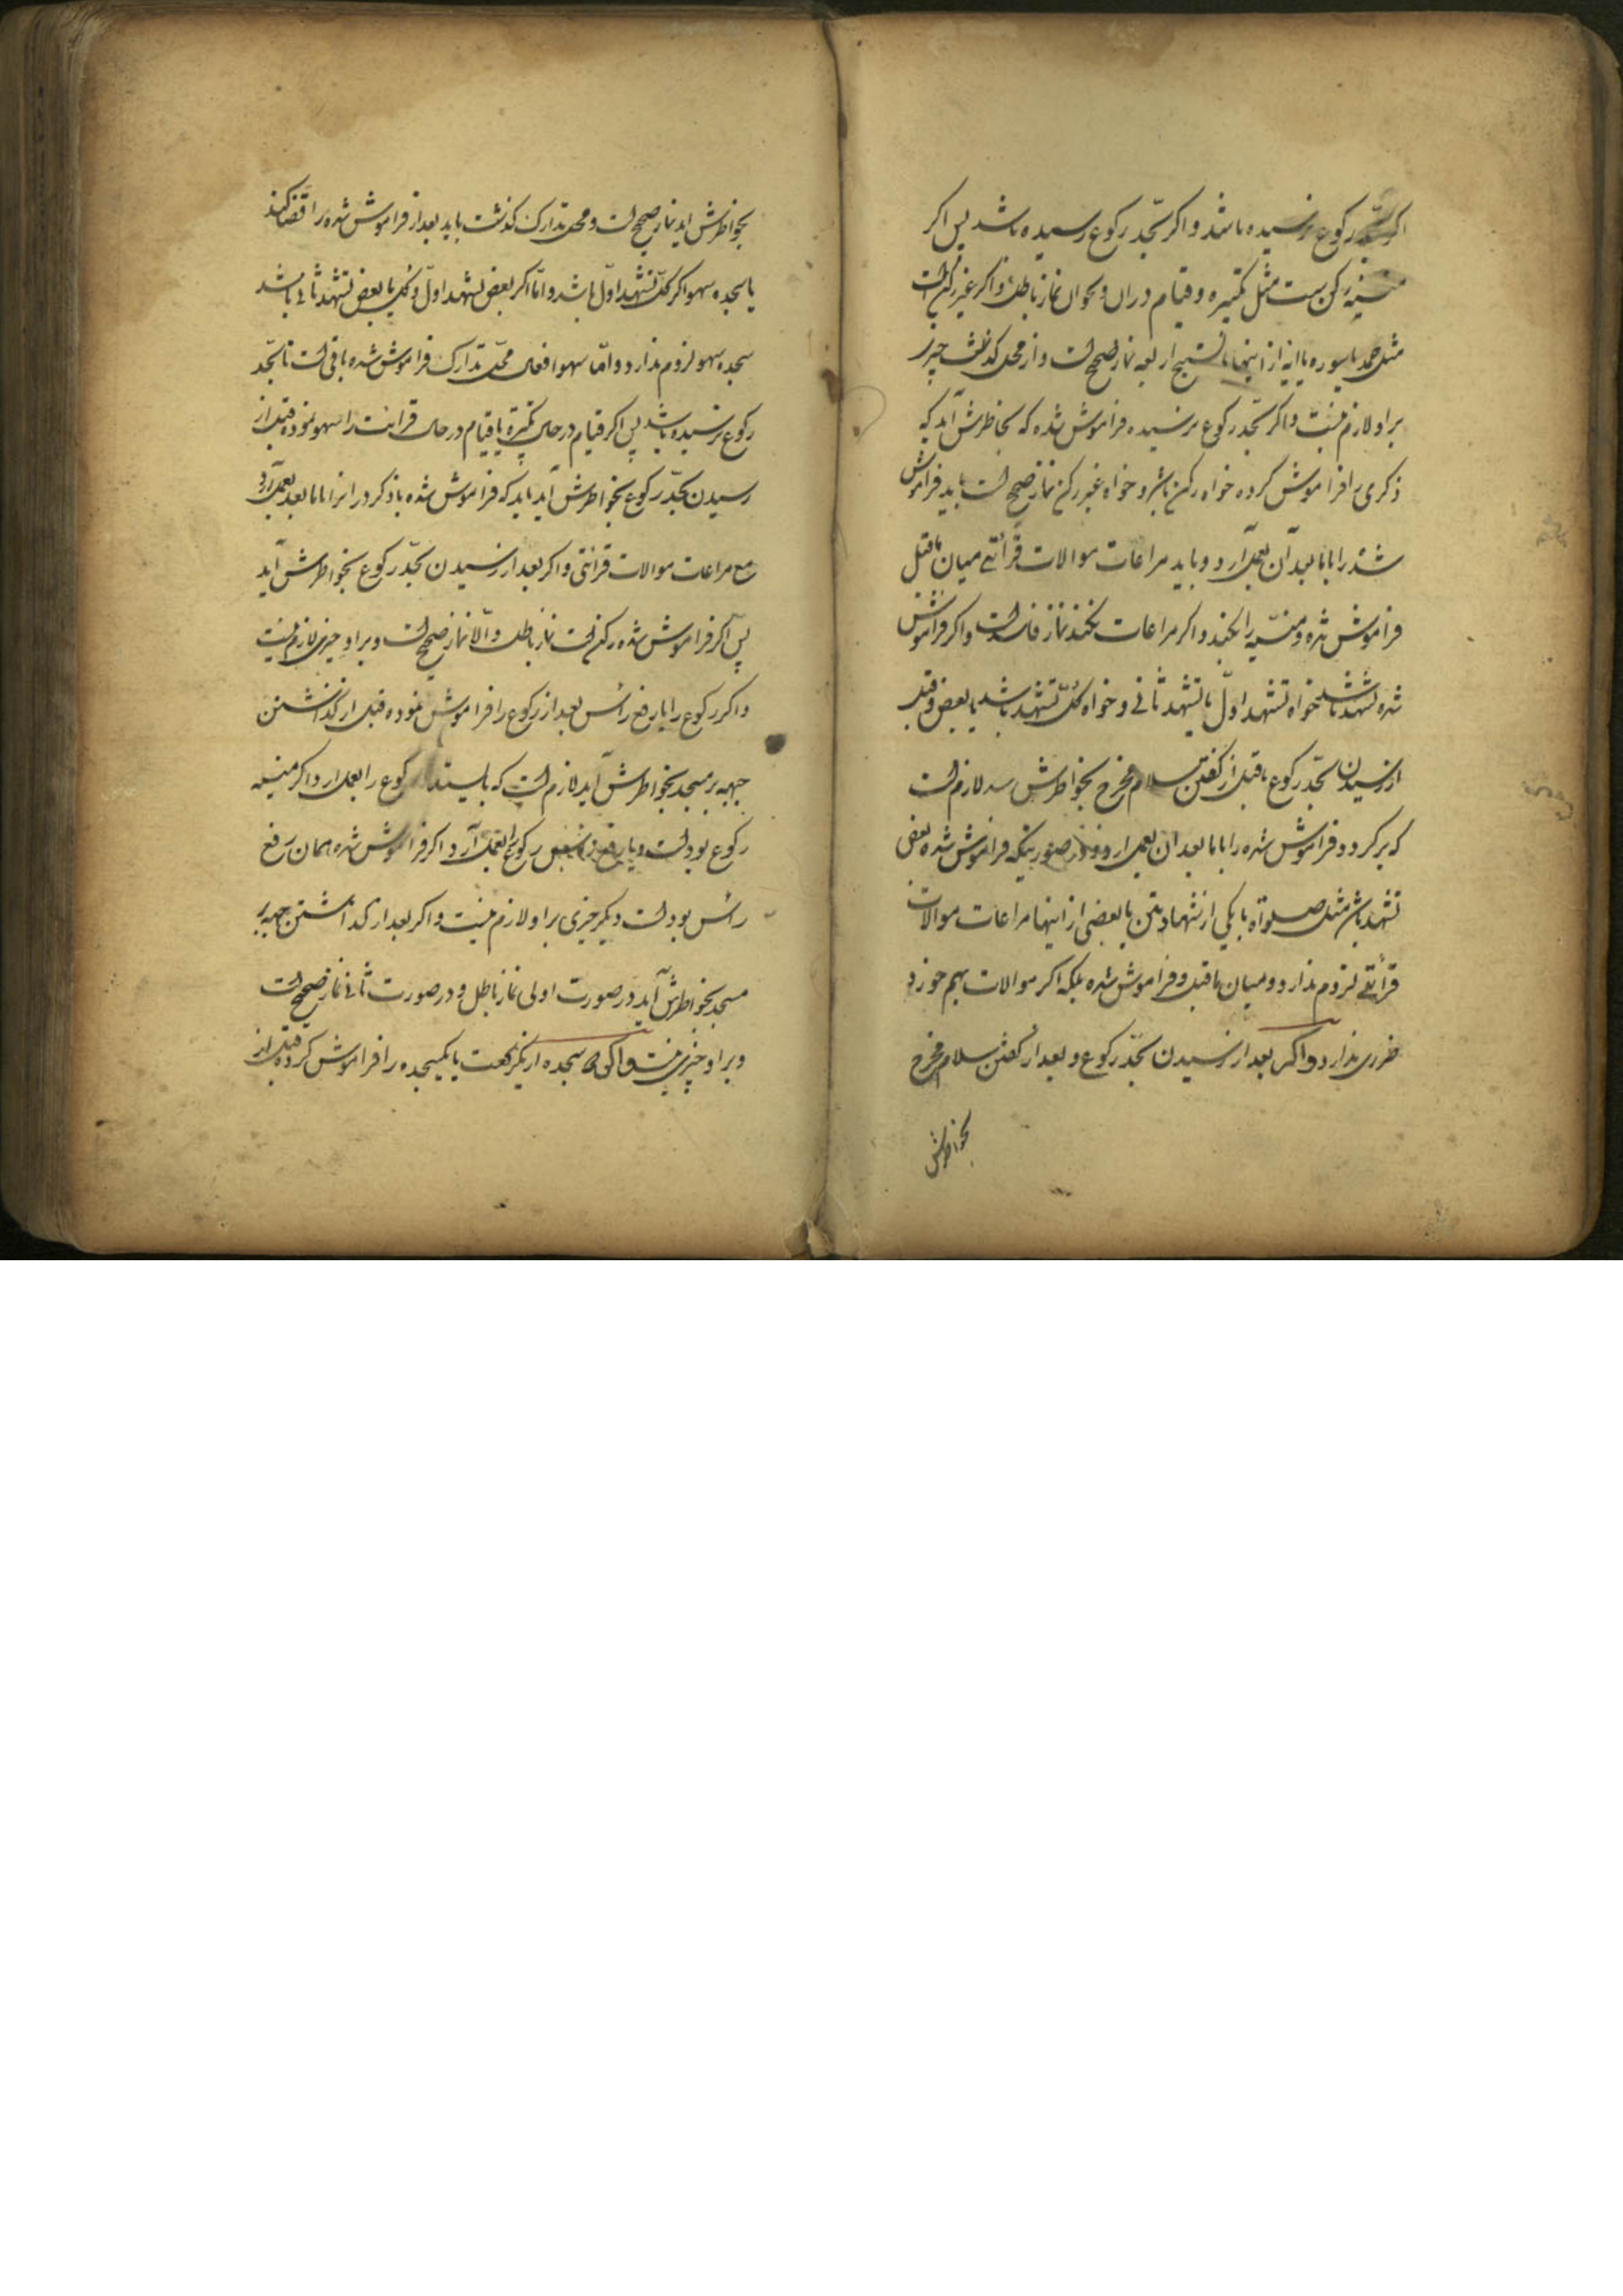 اکر بحدّ رکوع نرسیده باشد و اکر بحدّ رکوع رسیده باشد پس اکر
منسیّه رکن است مثل تکبیره و قیام در ان و نحو ان نماز باطلست و اکر غیر رکن است
مثل حمد یا سوره یا ایه از اینها یا تسبیح اربعه نماز صحیح است و از محل کذشت چیزی
بر او لازم نیست و اکر بحدّ رکوع نرسیده فراموش شده که بخاطرش آید که
ذکری را فراموش کرده خواه رکن باشد و خواه غیر رکن نماز صحیح است باید فراموش
شده را با ما بعد آن بعمل آرد و باید مراعات موالات قرائتے میان ما قبل
فراموش شده و منسیّه را بکند و اکر مراعات نکند نماز فاسد است و اکر فراموش
شده تشهد باشد خواه تشهد اوّل یا تشهد ثانی و خواه کلّ تشهد باشد یا بعض و قبل
از رسیدن بحدّ رکوع یا قبل از کفتن سلام مخرج بخواطرش رسد لازم است
که برکردد و فراموش شده را با ما بعد ان بعمل ارد و در صورتیکه فراموش شده بعض
تشهد باشد مثل صلواة یا یکی از شهادتین یا بعضی از اینها مراعات موالات
قرائتے لزوم ندارد و میان ما قبل و فراموش شده بلکه اکر موالات بهم خورد
ضرری ندارد و اکر بعد از رسیدن بحدّ رکوع و بعد از کفتن سلام مخرج
بخواطرش
بخواطرش اید نماز صحیح است و محل تدارک کذشت باید بعد از فراموش شده را قضا کند
با سجده سهو اکر کلّ تشهد اوّل باشد و امّا اکر بعض تشهد اوّل و کل یا بعض تشهد ثانی باشد
سجده سهو لزوم ندارد و امّا سهو افعال محلّ تدارک فراموش شده باقی است تا بحدّ
رکوع نرسیده باشد پس اکر قیام در حال تکبیرة یا قیام در حال قرائت را سهو نموده قبل از
رسیدن بحدّ رکوع بخواطرش آید باید که فراموش شده با ذکر در انرا با ما بعد بعمل آرد
مع مراعات موالات قرائتی و اکر بعد از رسیدن بحدّ رکوع بخواطرش آید
پس اکر فراموش شده رکن است نماز باطلست و الّا نماز صحیح است و بر او چیزی لازم نیست
و اکر رکوع را یا رفع رأس بعد از رکوع را فراموش نموده قبل از کذاشتن
جبهه بر مسجد بخواطرش آید لازم است که بایستد رکوع را بعمل ارد اکر منسیه
رکوع بوده است و یا رفع رأس رکوع را بعمل آرد اکر فراموش شده همان رفع
رأس بوده است و دیکر چیزی بر او لازم نیست و اکر بعد از کذاشتن جبهه بر
مسجد بخواطرش آید در صورت اولی نماز باطل و در صورت ثانی نماز صحیح است
و بر او چیزی نیست و اکر دو سجده از یکرکعت یا یکسجده را فراموش کرده قبل از